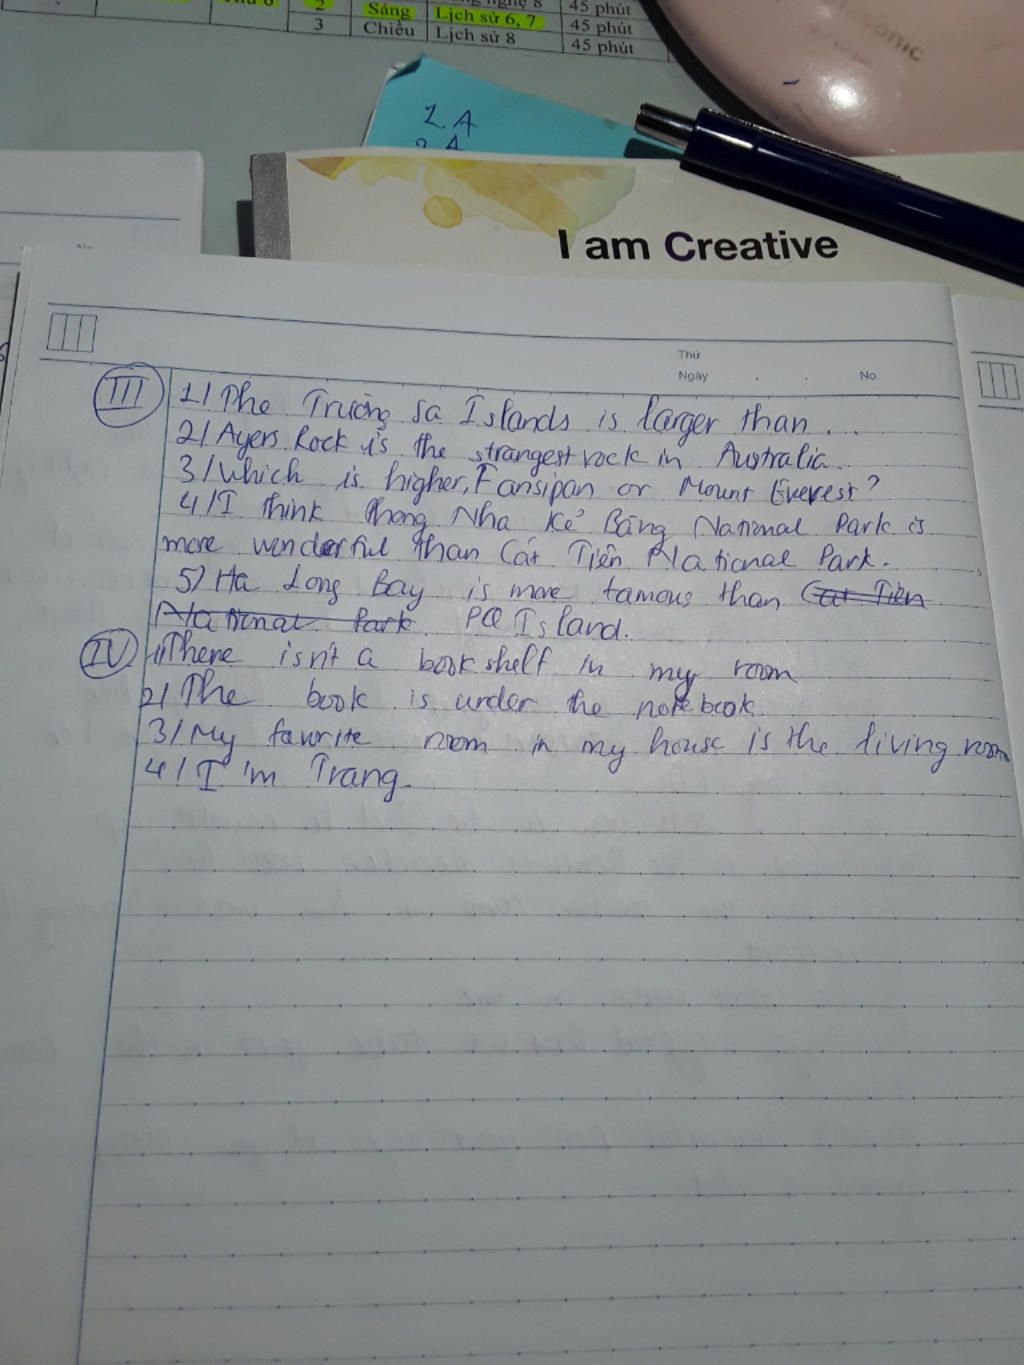 2
Sáng
Lịch sử 6, 7
45 phút
3
Chiều
Lịch sử 8
45 phút
45 phút
1. A
2 A
I am Creative
Thứ
Ngày . . No.
III 1/ The Trường Sa Islands is larger than...
2/ Ayers Rock is the strangest rock in Australia.
3/ Which is higher, Fansipan or Mount Everest?
4/ I think Phong Nha Kẻ Bàng National Park is
more wonderful than Cát Tiên National Park.
5/ Ha Long Bay is more famous than Cat Tien
National Park PQ Island.
IV 1/ There isn't a bookshelf in my room
2/ The book is under the notebook.
3/ My favorite room in my house is the living room
4/ I'm Trang.